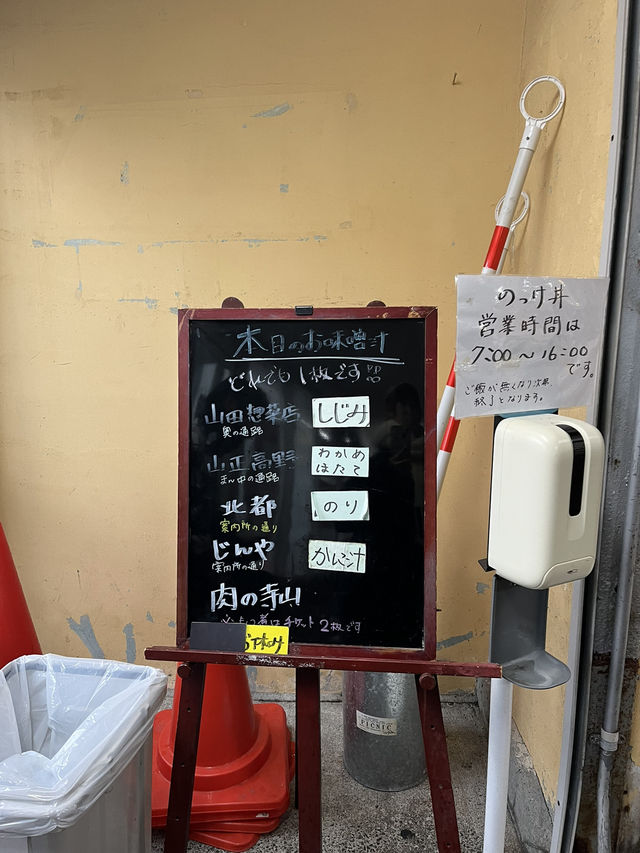 本日のお味噌汁
どれでも1枚です!!
山田惣菜店
奥の通路
しじみ
山正高野
まん中の通路
わかめ
ほたて
北都
案内所の通り
のり
じんや
案内所の通り
肉の寺山
チケット2枚です
お休み
のっけ丼
営業時間は
7:00〜16:00
です。
ご飯が無くなり次第
終了となります。
PICNIC